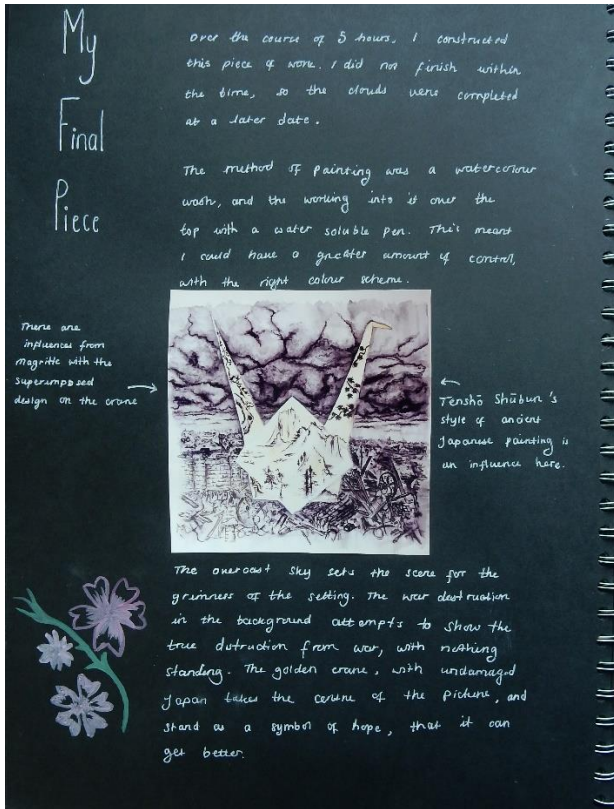 My
Final
Piece
Over the course of 5 hours, I constructed
this piece of work. I did not finish within
the time, so the clouds were completed
at a later date.
The method of painting was a watercolour
wash, and the working into it over the
top with a water soluble pen. This meant
I could have a greater amount of control,
with the right colour scheme.
There are
influences from
magritte with the
superimposed
design on the crane
Tenshō Shūbun's
style of ancient
Japanese painting is
an influence here.
The overcast sky sets the scene for the
grimness of the setting. The war destruction
in the background attempts to show the
true distruction from war, with nothing
standing. The golden crane, with undamaged
Japan takes the centre of the picture, and
stand as a symbol of hope, that it can
get better.